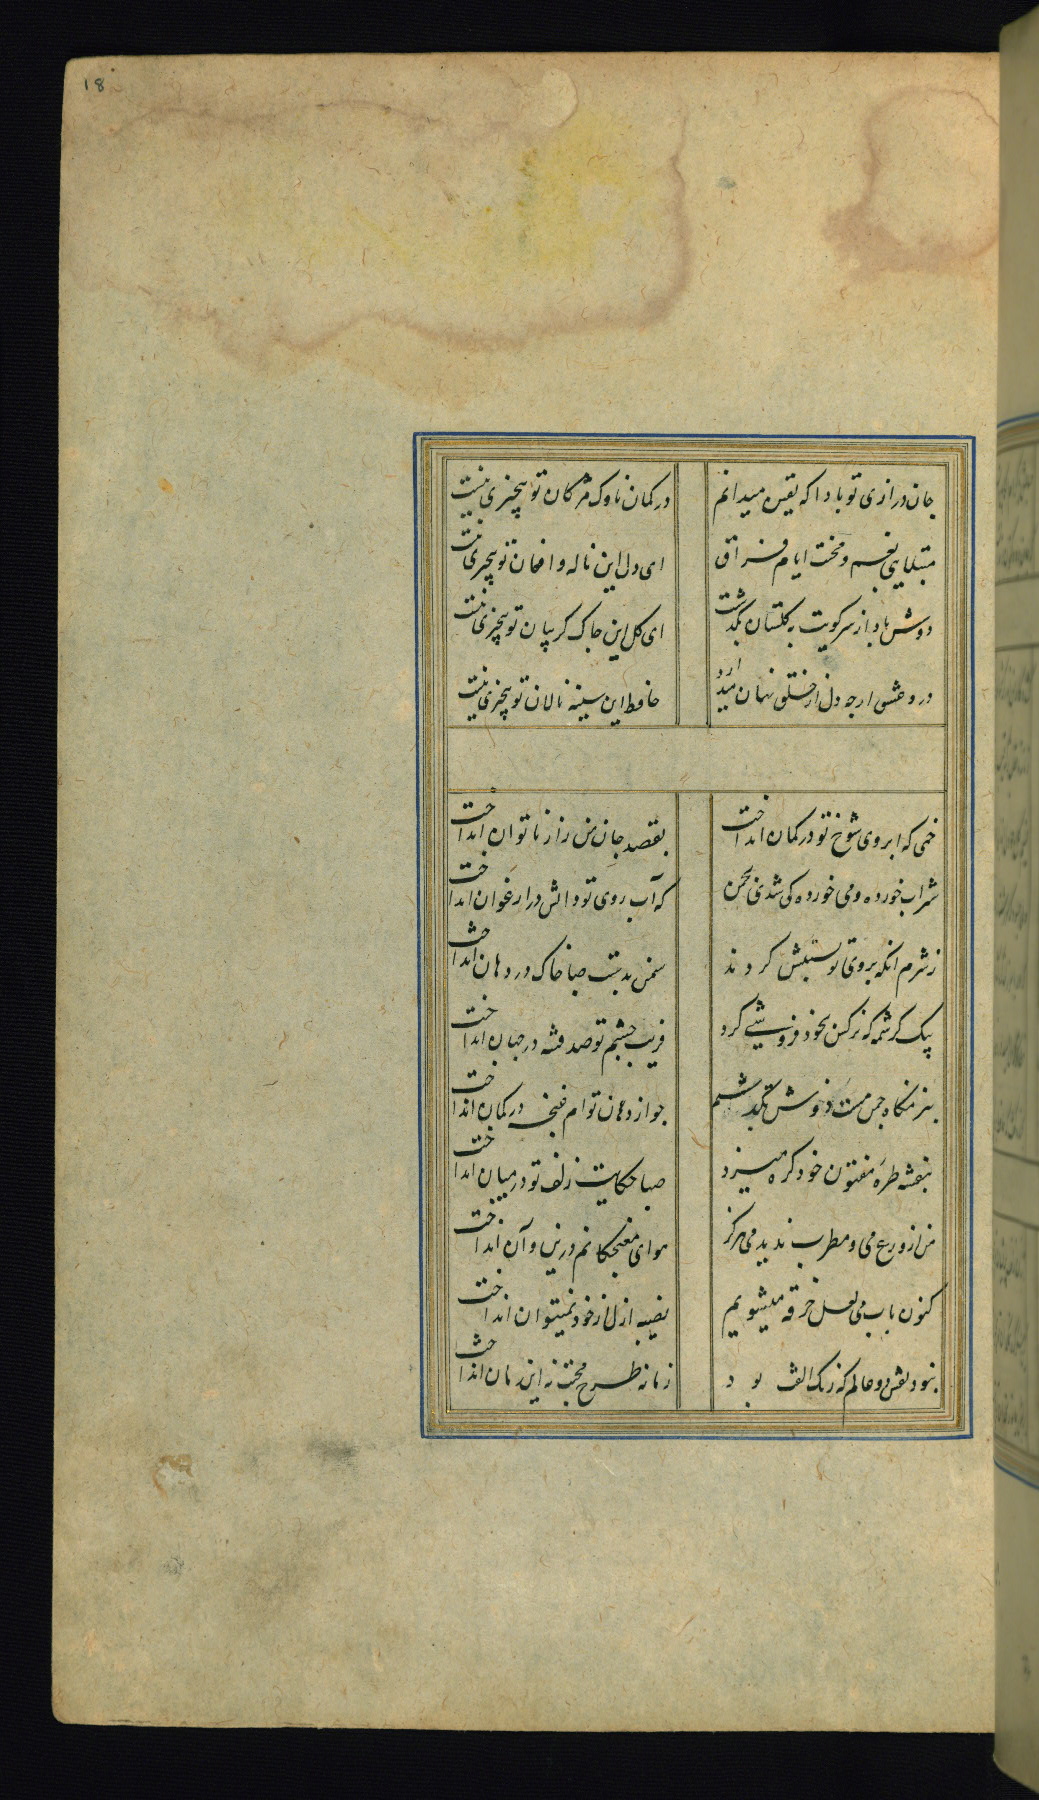 18
جان درازی تو بادا که یقین میدانم در کمان ناوک مژکان تو بیچیزی نیست
مبتلایی بغم و محنت ایام فراق ای دل این ناله و افغان تو بیچیزی نیست
دوش باد از سر کویت به کلستان بکذشت ای کل این چاک کریبان تو بیچیزی نیست
درد عشق ارچه دل از خلق نهان میدارد حافظ این سینه نالان تو بیچیزی نیست
خمی که ابروی شوخ تو در کمان انداخت بقصد جان من زار ناتوان انداخت
شراب خورده و می خورده کی شدی بچمن که آب روی تو واتش در ارغوان انداخت
ز شرم انکه بروی تو نسبتش کردند سمن بدست صبا خاک در دهان انداخت
بیک کرشمه که نرکس بخود فروشی کرد فریب چشم تو صد فتنه در جهان انداخت
ببزمکاه چمن مست دوش بکذشتم چو از دهان توام غنچه در کمان انداخت
بنفشه طره مفتون خود کره میزد صبا حکایت زلف تو در میان انداخت
من از ورع می و مطرب ندیدمی هرکز هوای مغبچکانم درین و آن انداخت
کنون باب می لعل خرقه میشویم نصیبه ازل از خود نمیتوان انداخت
نبود نقش دو عالم که رنک الفت بود زمانه طرح محبت نه این زمان انداخت